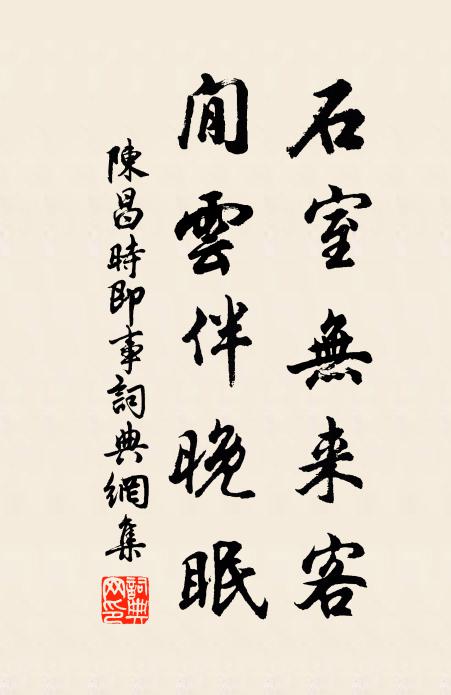 石室無来客
閒雲伴晚眠
陳昌時即事詞典網集
詞典网印